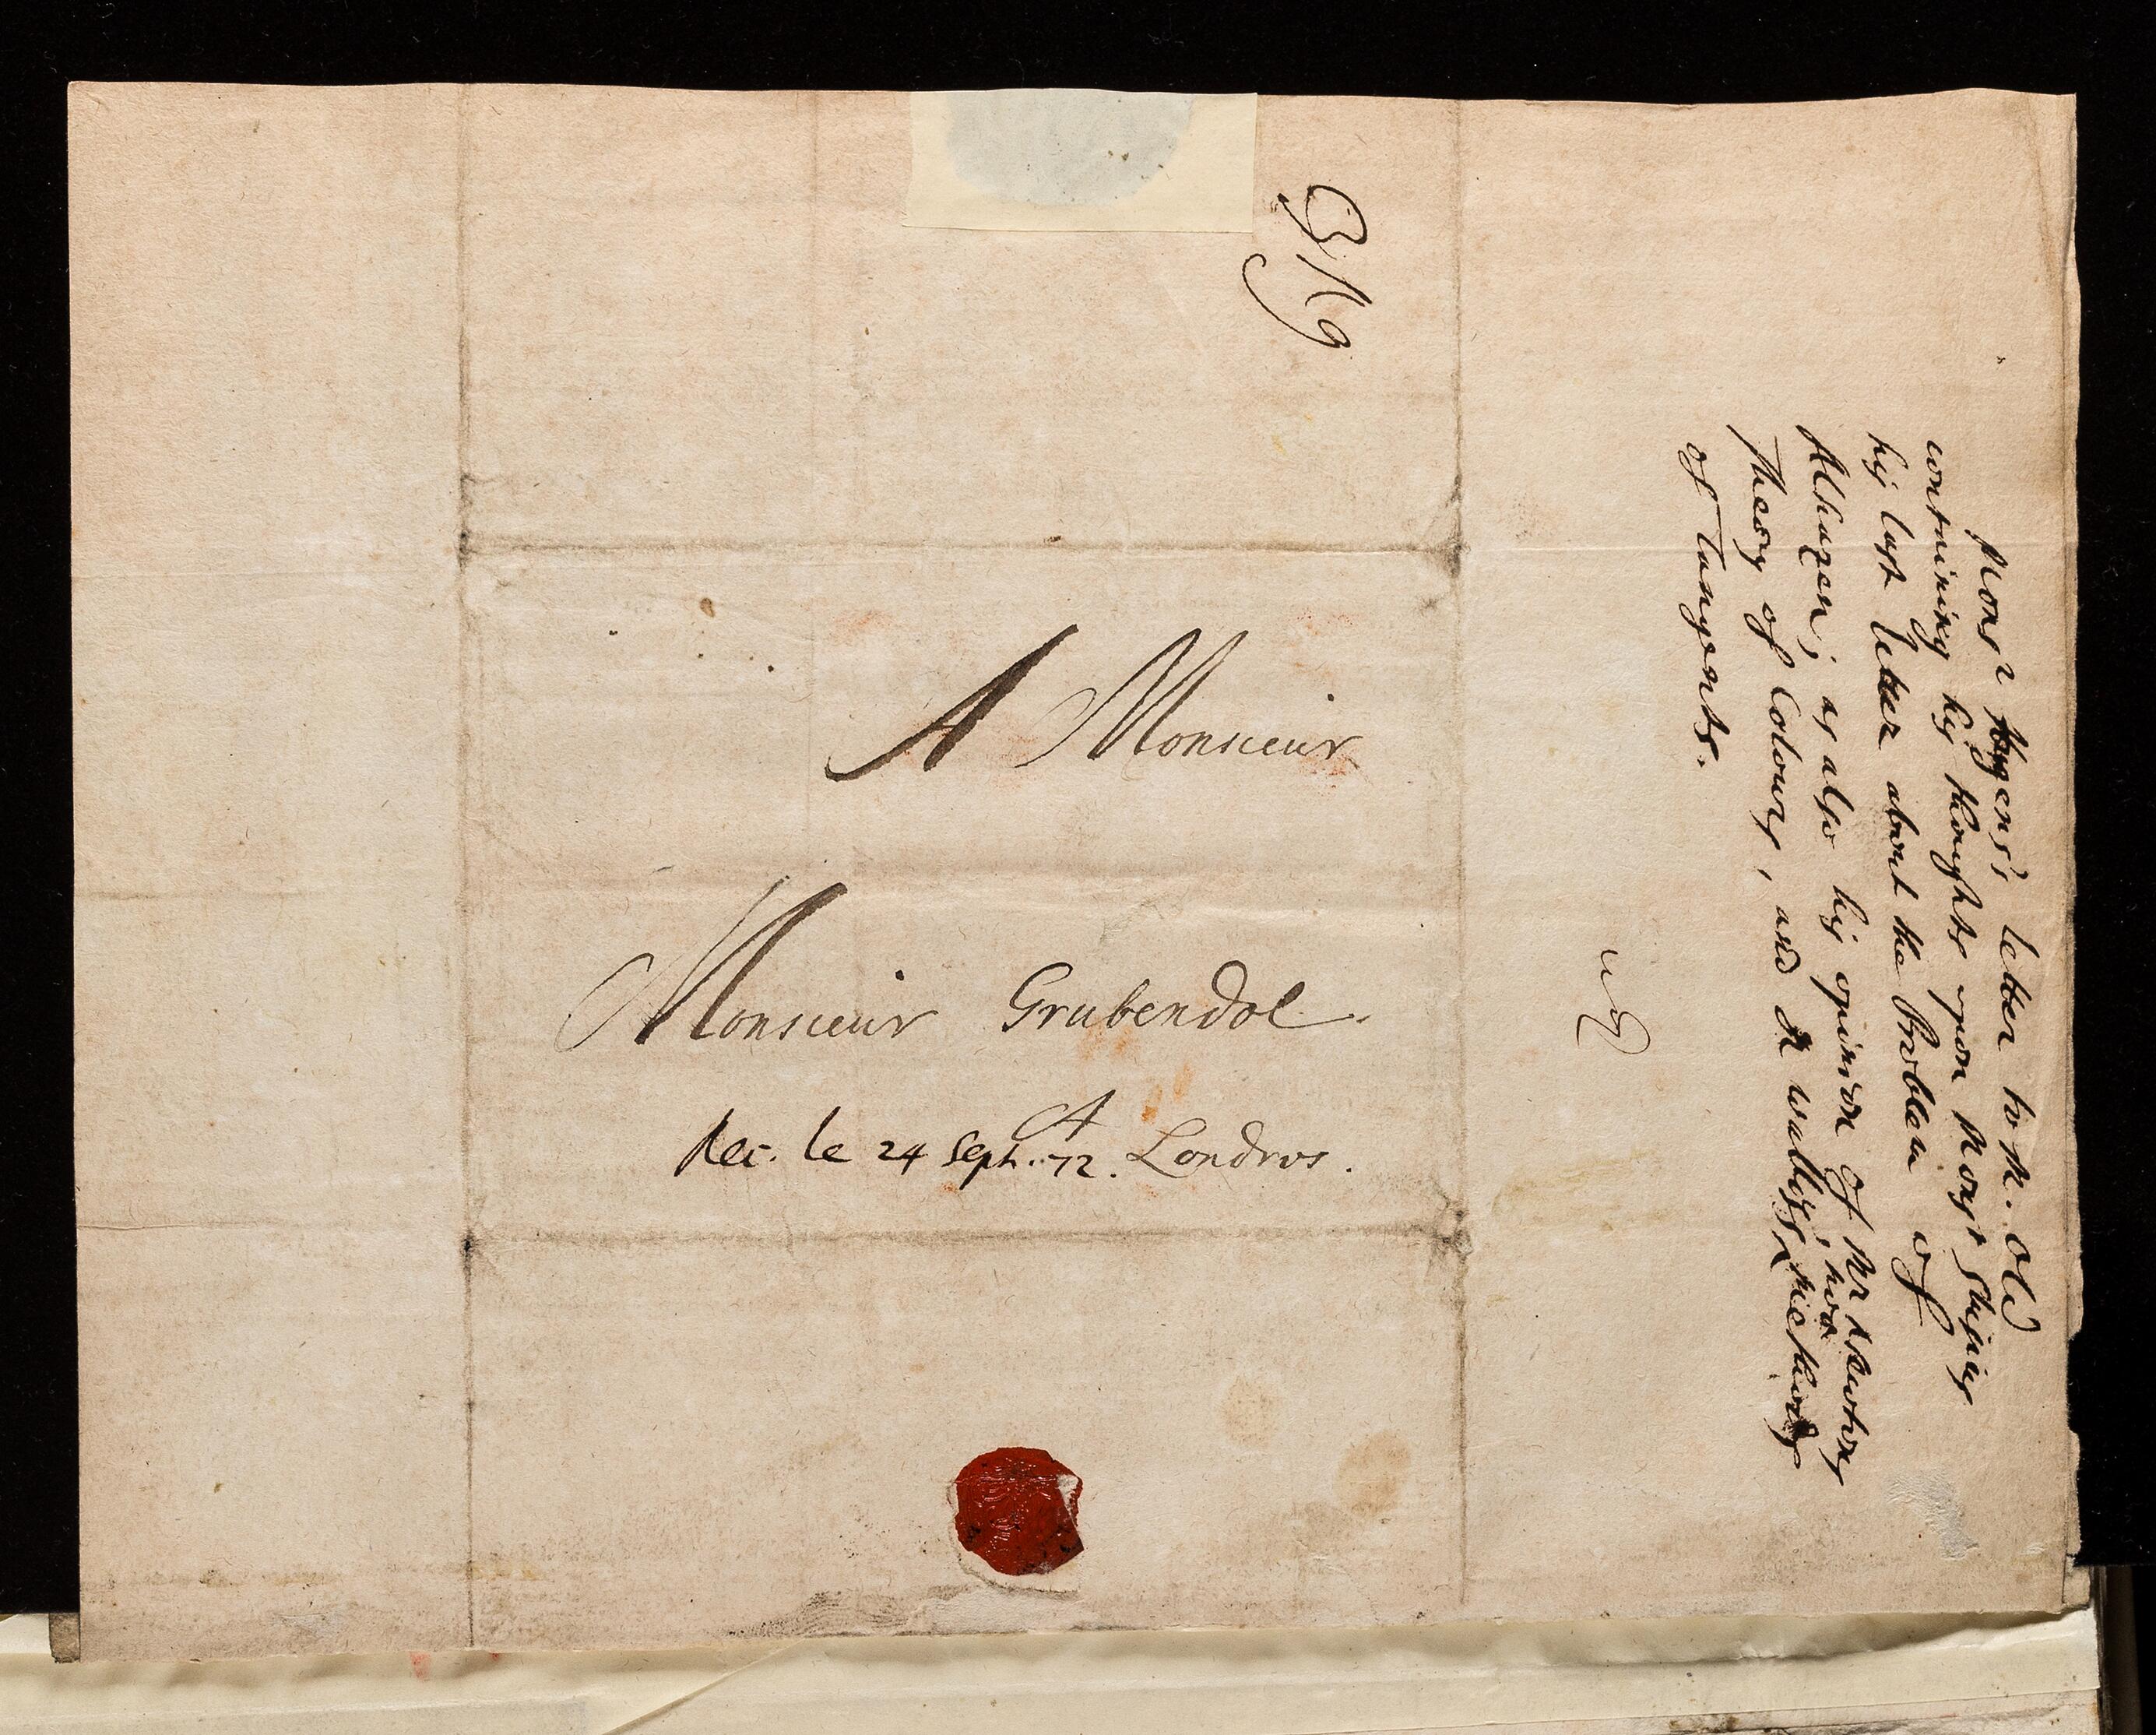 A Monsieur
Monsieur Grubendol.
A
Rec. le 24 Sept. 72. Londres.
Monsr Hugens's letter to M. Old
containing his thoughts upon Monsr Slusius
his last letter about the Problem of
Alhazen; as also his opinion of Mr Newtons
Theory of Colours, and Dr Wallis's
of Tangents.